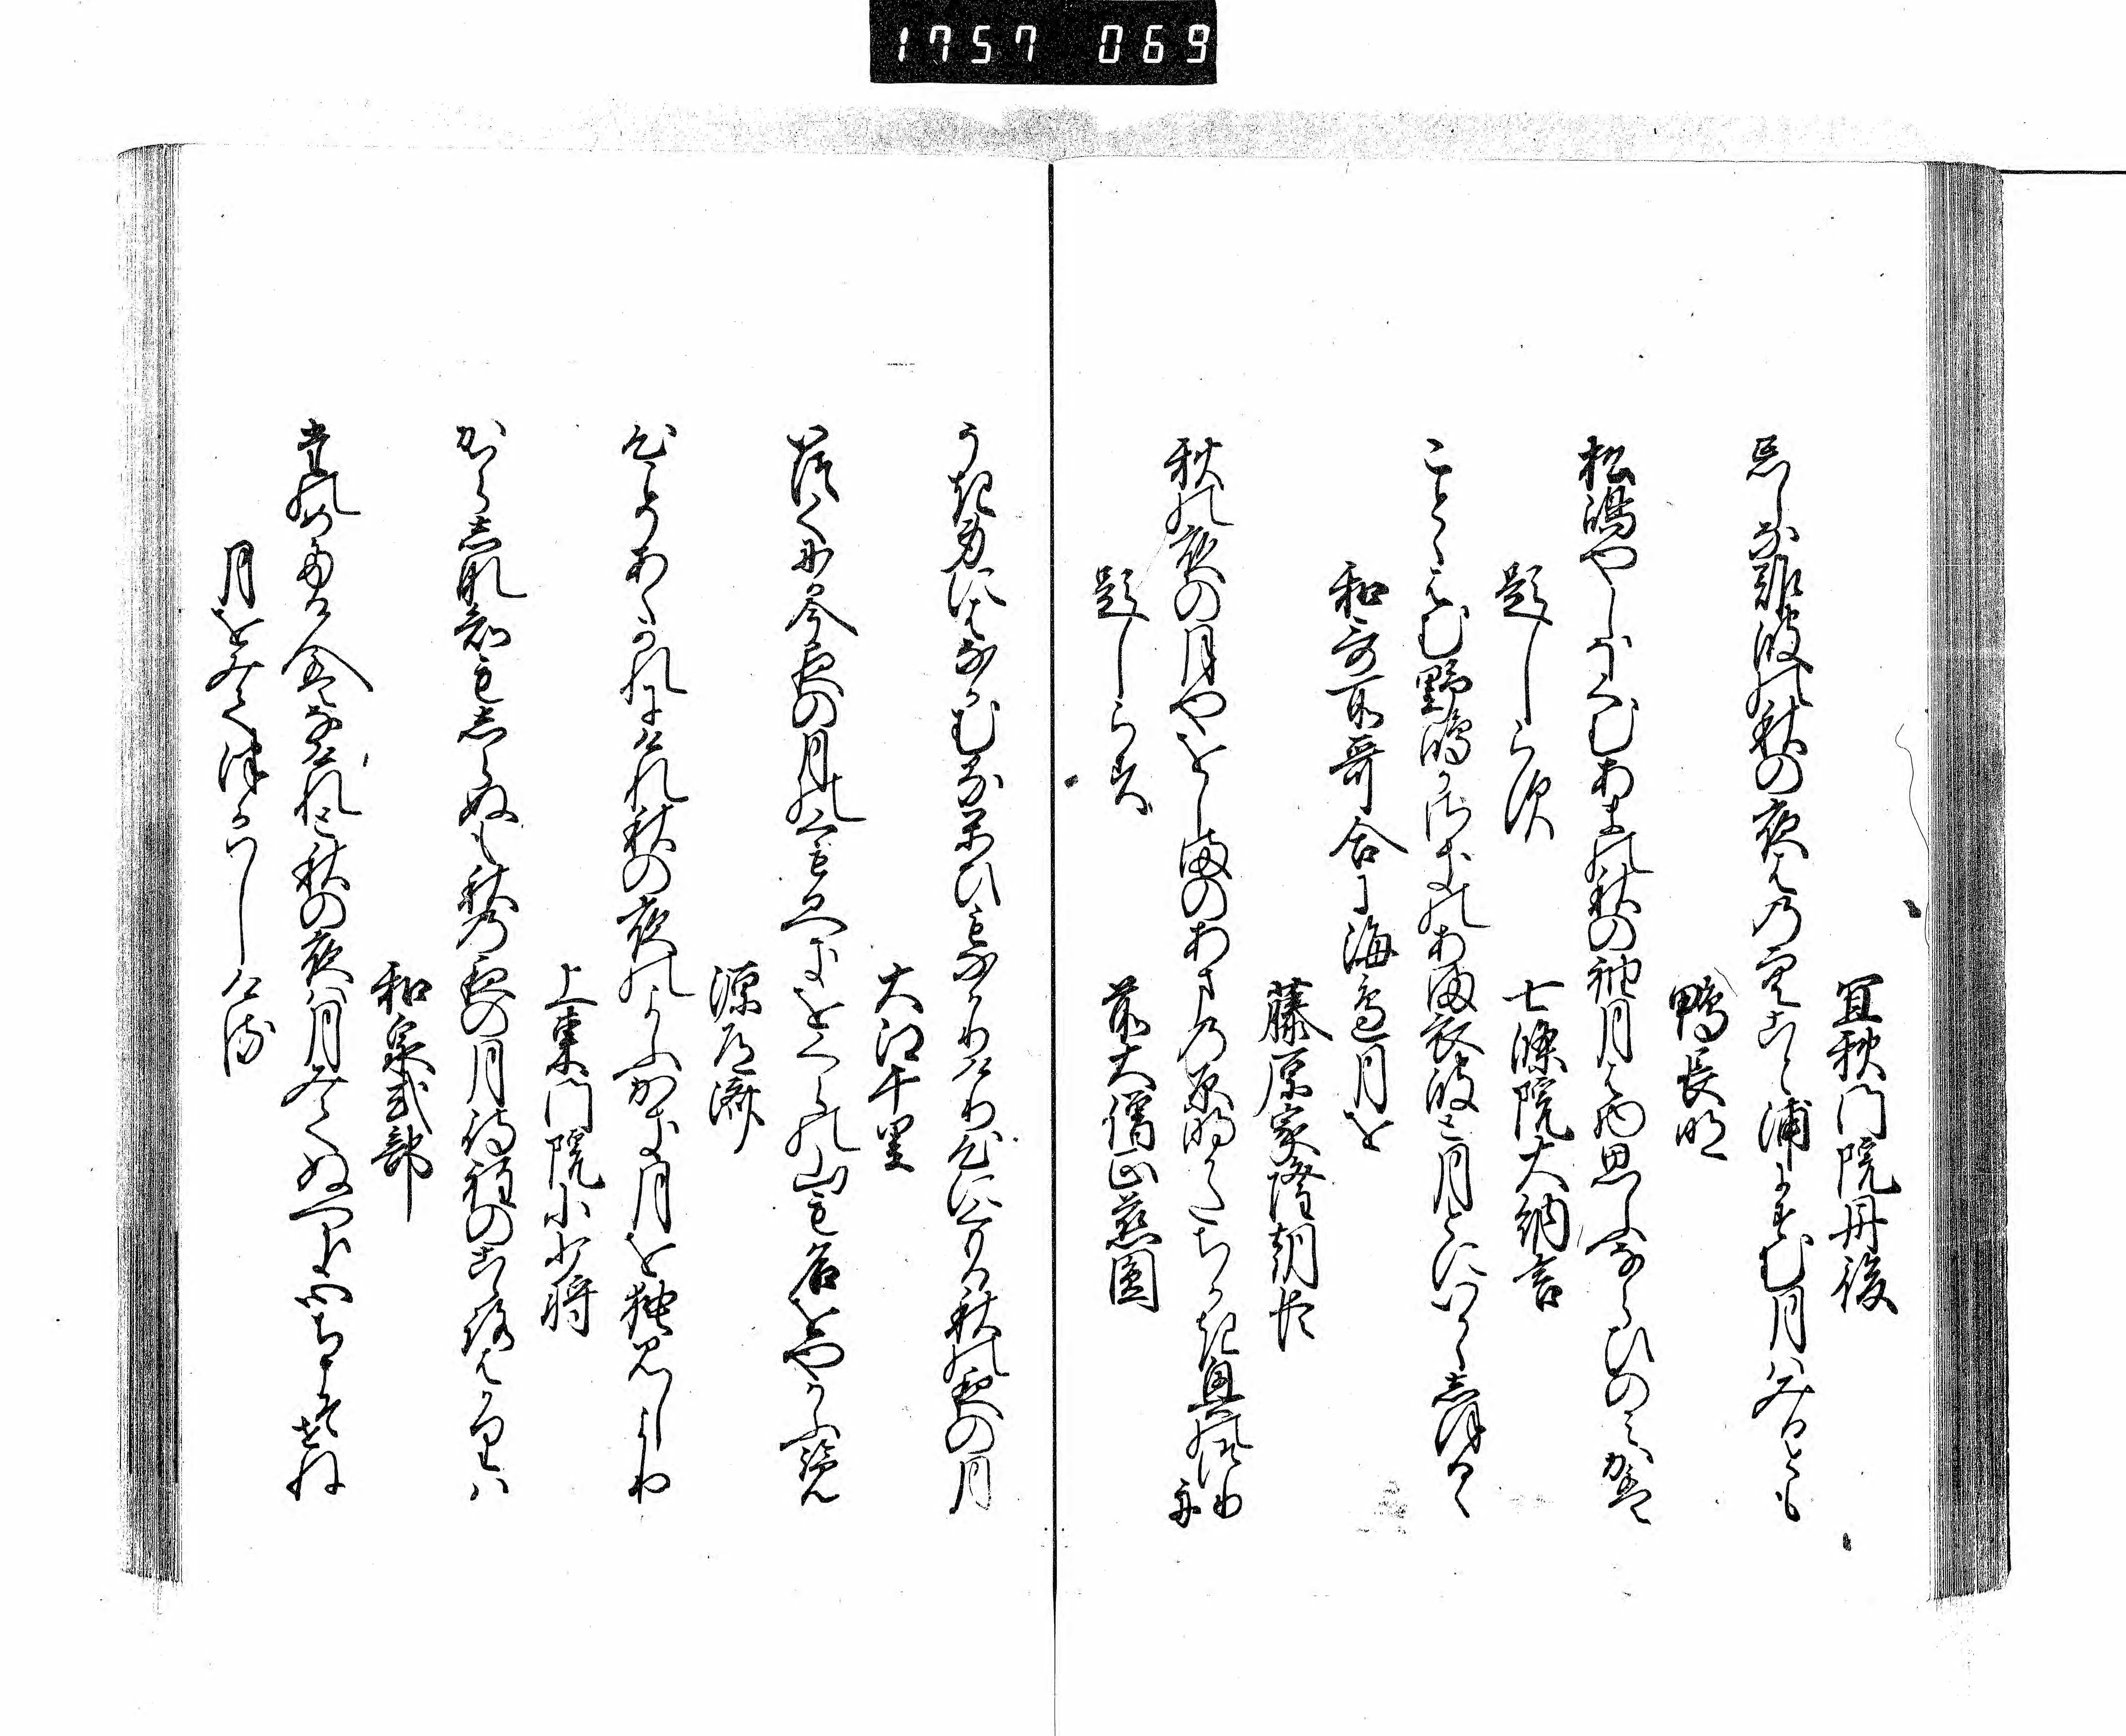 1757 069
宜秋門院丹後
忘しな難波の秋の夜はの空こと浦にすむ月はみるとも
鴨長明
松嶋やしほくむあまの秋の袖月は物思ふならひのみかは
題しらす
七條院大納言
こととはむ野嶋か崎のあま衣波と月とにいかゝしほるゝ
和哥所哥合に海邊月を
藤原家隆朝臣
秋の夜の月やをしまのあまの原明かたちかき奥の釣舟
題しらす
前大僧正慈圓
うき身にはなかむるかひもなかりけり心にくもる秋の夜の月
大江千里
いつくにか今夜の月のくもるへきをくらの山も名をやかふ覧
源道濟
心こそあくかれにけれ秋の夜のよふかき月を独見しより
上東門院小少将
かはらし知もしらぬも秋の夜の月待程のこゝろはかりは
和泉式部
たのめたる人はなけれと秋の夜は月みてぬへき心ちこそせね
月をみてつかはしける